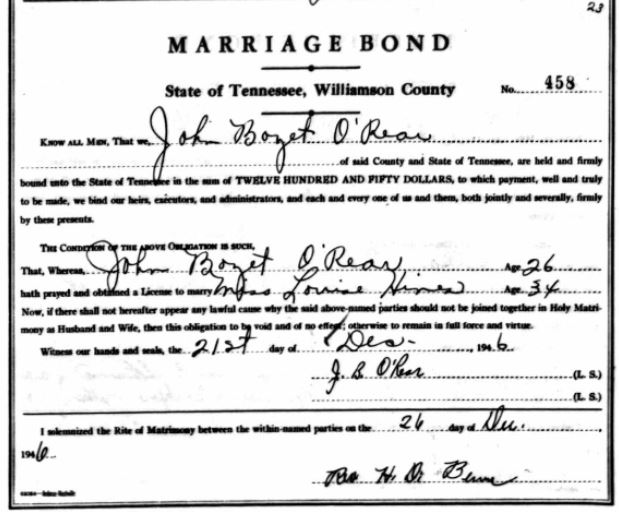 23
MARRIAGE BOND
State of Tennessee, Williamson County No. 458
KNOW ALL MEN, That we, John Bozet O'Rear
of said County and State of Tennessee, are held and firmly
bound unto the State of Tennessee in the sum of TWELVE HUNDRED AND FIFTY DOLLARS, to which payment, well and truly
to be made, we bind our heirs, executors, and administrators, and each and every one of us and them, both jointly and severally, firmly
by these presents.
THE CONDITION OF THE ABOVE OBLIGATION IS SUCH,
That, Whereas, John Bozet O'Rear Age 26
hath prayed and obtained a License to marry Miss Louise Hines Age 34
Now, if there shall not hereafter appear any lawful cause why the said above-named parties should not be joined together in Holy Matri-
mony as Husband and Wife, then this obligation to be void and of no effect; otherwise to remain in full force and virtue.
Witness our hands and seals, the 21st day of Dec. , 1946
J. B. O'Rear (L. S.)
(L. S.)
I solemnized the Rite of Matrimony between the within-named parties on the 26 day of Dec.
1946.
Rev. H. D.